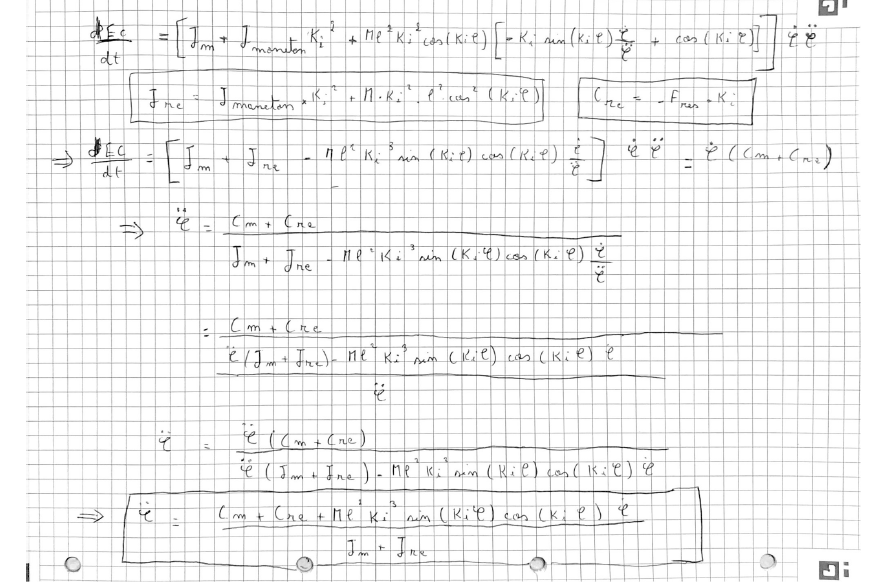 dEc/dt = [Jm + Jmaneton Ki² + Ml²Ki² cos(Kiφ) [-Ki sin(Kiφ) φ̇/φ̈ + cos(Kiφ)]] φ̇ φ̈
Jre = Jmaneton × Ki² + M·Ki²·l² cos²(Kiφ)
Cre = -Fres · Ki
⇒ dEc/dt = [Jm + Jre - Ml²Ki³ sin(Kiφ) cos(Kiφ) φ̇/φ̈] φ̇ φ̈ = φ̇ (Cm + Cre)
⇒ φ̈ = (Cm + Cre) / (Jm + Jre - Ml²Ki³ sin(Kiφ) cos(Kiφ) φ̇/φ̈)
= (Cm + Cre) / ((φ̈(Jm + Jre) - Ml²Ki³ sin(Kiφ) cos(Kiφ) φ̇) / φ̈)
φ̈ = φ̈(Cm + Cre) / (φ̈(Jm + Jre) - Ml²Ki³ sin(Kiφ) cos(Kiφ) φ̇)
⇒ φ̈ = (Cm + Cre + Ml²Ki³ sin(Kiφ) cos(Kiφ) φ̇) / (Jm + Jre)